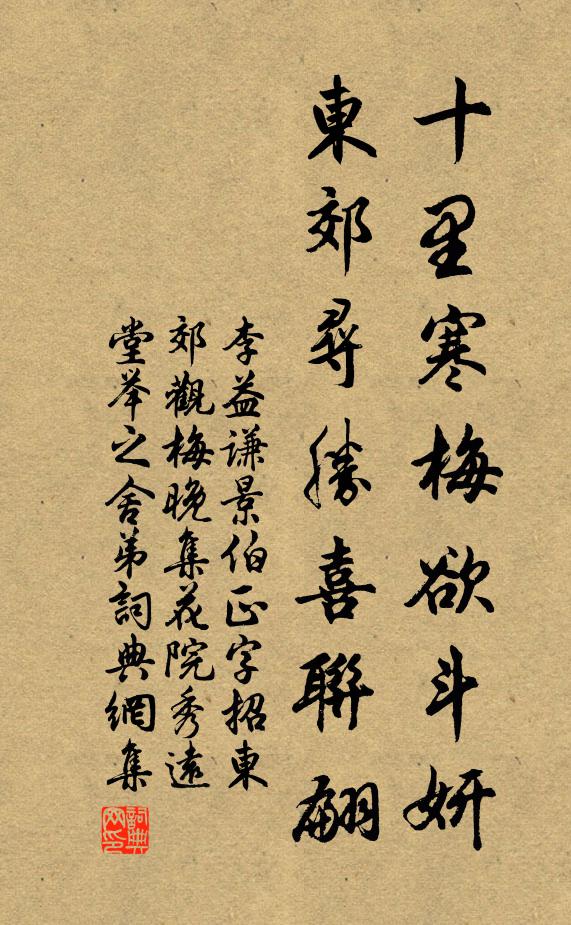 十里寒梅欲斗妍
東郊尋勝喜聯翩
李益謙景伯正字招東
郊觀梅晚集花院秀遠
堂舉之舍弟詞典網集
詞典网印